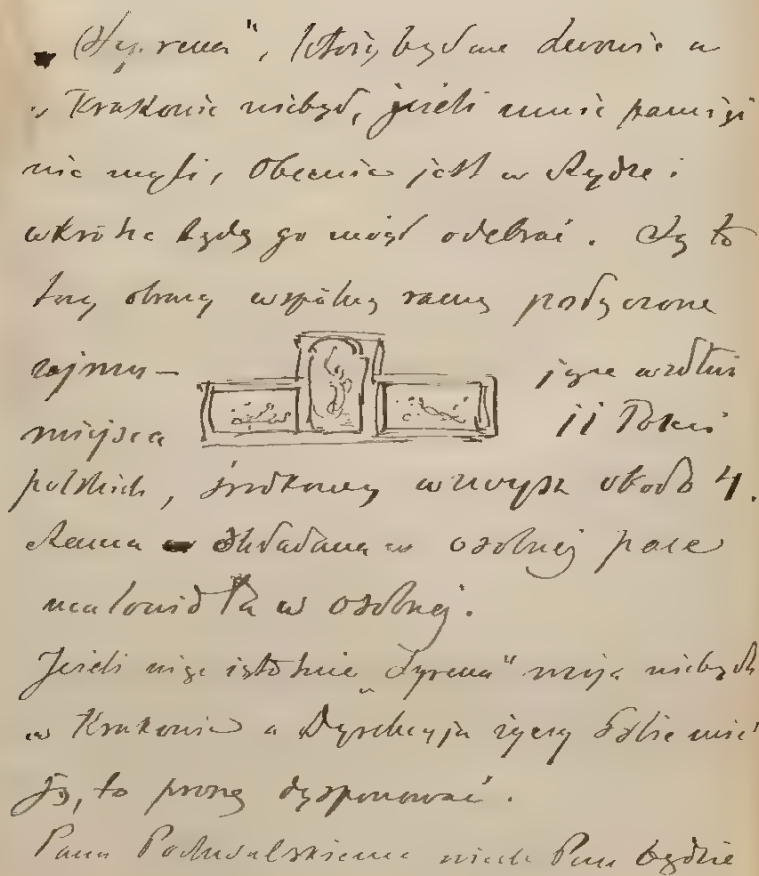 „Syrena", która, był we Lwowie a
w Krakowie niebył, jeżeli mnie pamięć
nie myli, Obecnie jest w Rydze i
wkrótce będę go mógł odebrać. Są to
trzy obrazy wspólną ramą połączone
zajmu- jące wzdłuż
miejsca 11 Łokci
polskich, środkowy wzwysz około 4.
Rama składana w osobnej pace
malowidła w osobnej.
Jeżeli więc istotnie „Syrena" moja niebyła
w Krakowie a Dyrekcyja życzy sobie mieć
ją, to proszę dysponować.
Panu niech Pan będzie